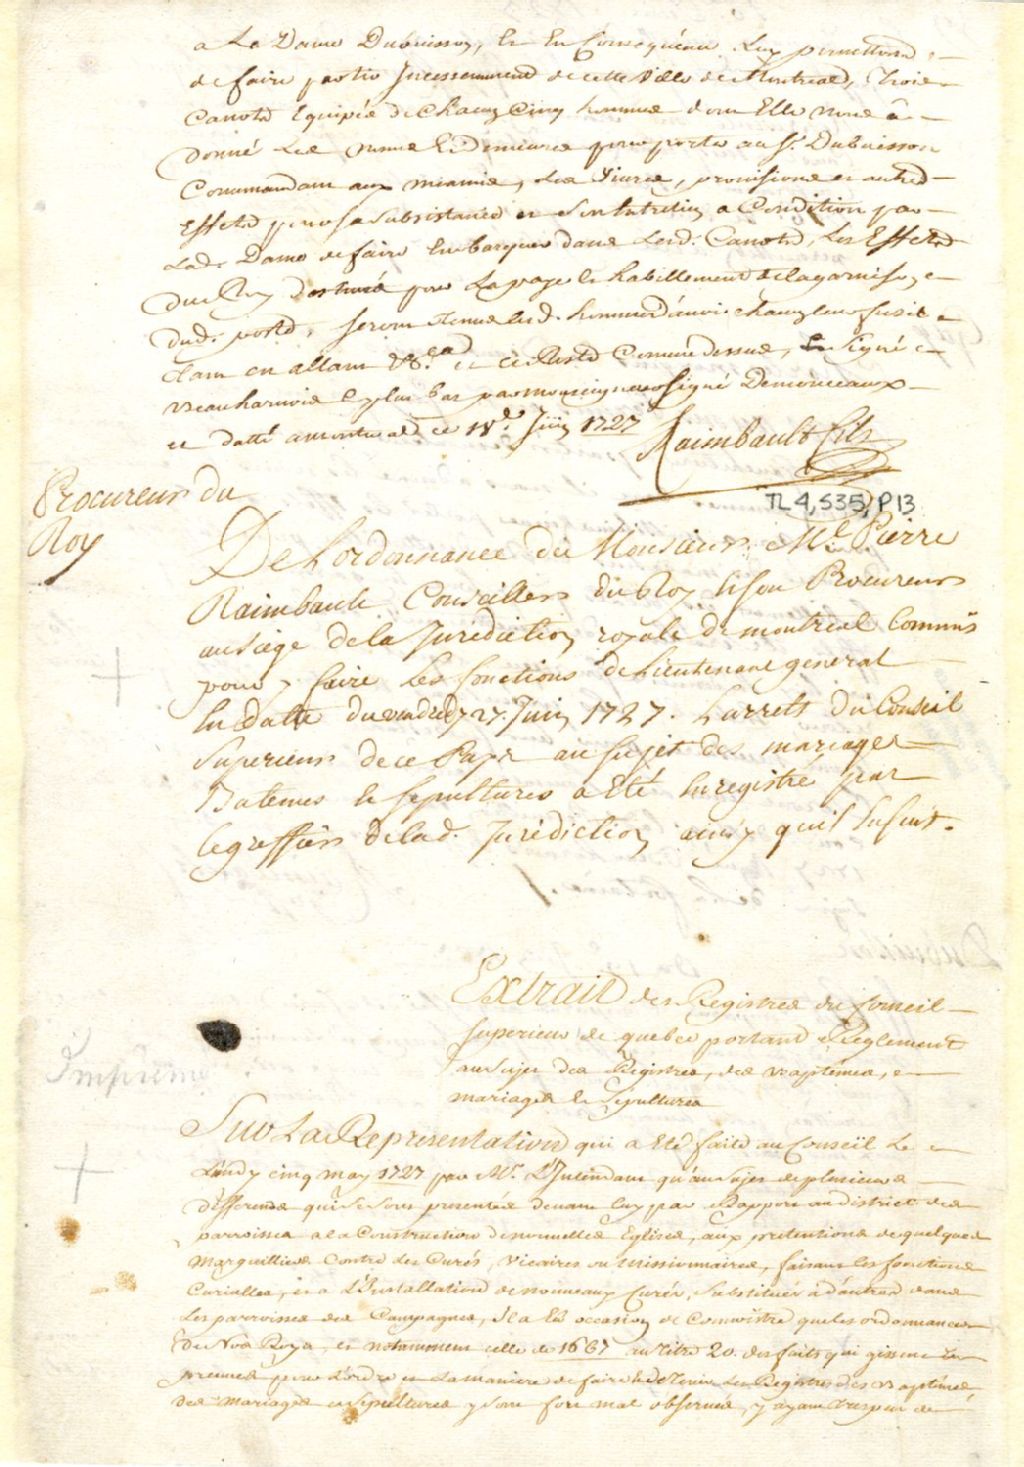 a La Dame Dubuisson, Et En Consequence Luy permettons
de faire partir Incessamment de cette Ville de Montreal, trois
Canots Equipés de Chacun Cinq hommes dont Elle nous a
donné Les noms Et Demeures pour porter au Sr. Dubuisson
Commandant aux miamis, des Vivres, provisions et autres
Effets pour sa subsistance et son Entretien a Condition par
Lad. Dame de faire Embarquer dans Lesd. Canots, Les Effets
du Roy destinés pour La paye Et habillement de la garnison
dud. poste, seront tenus lesd. hommes d'avoir chacun leur fusil
tant en allant qu'en et ce Poste Comme dessus, Signé
Beauharnois Et plus bas par monseigneur Signé Demonceaux
et datté a montreal ce 18e. Juin 1727 Raimbault fils
TL4, S35, P13
Procureur du
Roy
De Lordonnance de Monsieur Me. Pierre
Raimbault Conseiller du Roy Et son Procureur
au siege de la Jurediction royale de montreal Commis
pour y faire Les fonctions de Lieutenant general
En datte du vendredy 27. Juin 1727. Larrets du Conseil
Superieur de ce Pays au sujet des mariages
Batemes Et sepultures a Eté Enregistré par
le greffier de lad. Jurediction ainsy quil Ensuit.
Extrait des Registres du Conseil
Superieur de quebec portant Reglement
au sujet des Registres, des Baptêmes,
mariages Et Sepultures
Imprimé
Sur La Representation qui a Eté faite au Conseil Le
Lundy cinq may 1727 par Mr. L'Intendant qu'au sujet de plusieurs
differends qui se sont presentés devant luy par Rapport au district des
parroisses a la Construction de nouvelles Eglises, aux pretentions de quelques
Marguilliers Contre des Curés, Vicaires ou missionnaires, faisant les fonctions
Curialles, et a L'Installation de nouveaux Curés, Substitués a d'autres dans
Les parroisses des Campagnes, Il a Eu occasion de Connoistre que les ordonnances
De Nos Roys, et notamment celle de 1667 au titre 20. des faits qui gissent En
preuves pour L'ordre et La maniere de faire et de tenir Les Registres des Baptêmes,
des mariages et Sepultures y sont fort mal observés, y ayant